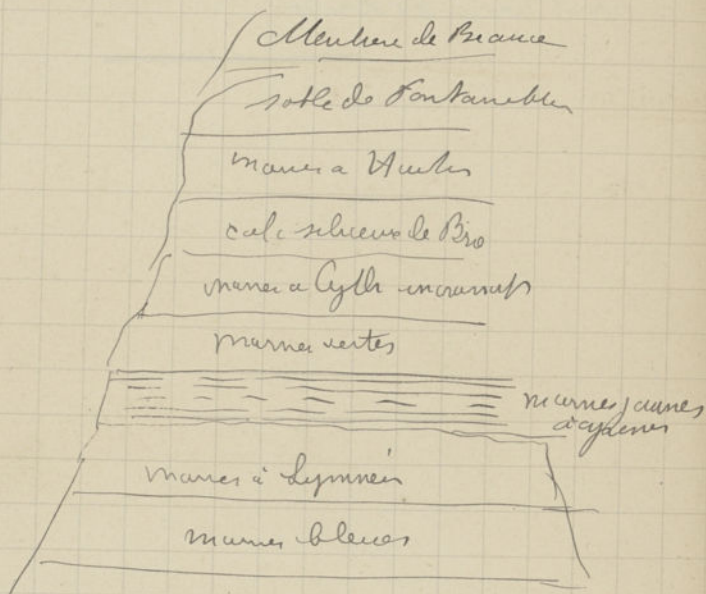 Meuliere de Beauce
sable de Fontainebleau
marnes a Huitres
calc silicieux de Brie
marnes a Cyth incrassat
marnes vertes
marnes jaunes
à cyrenes
marnes à Lymnées
marnes bleues